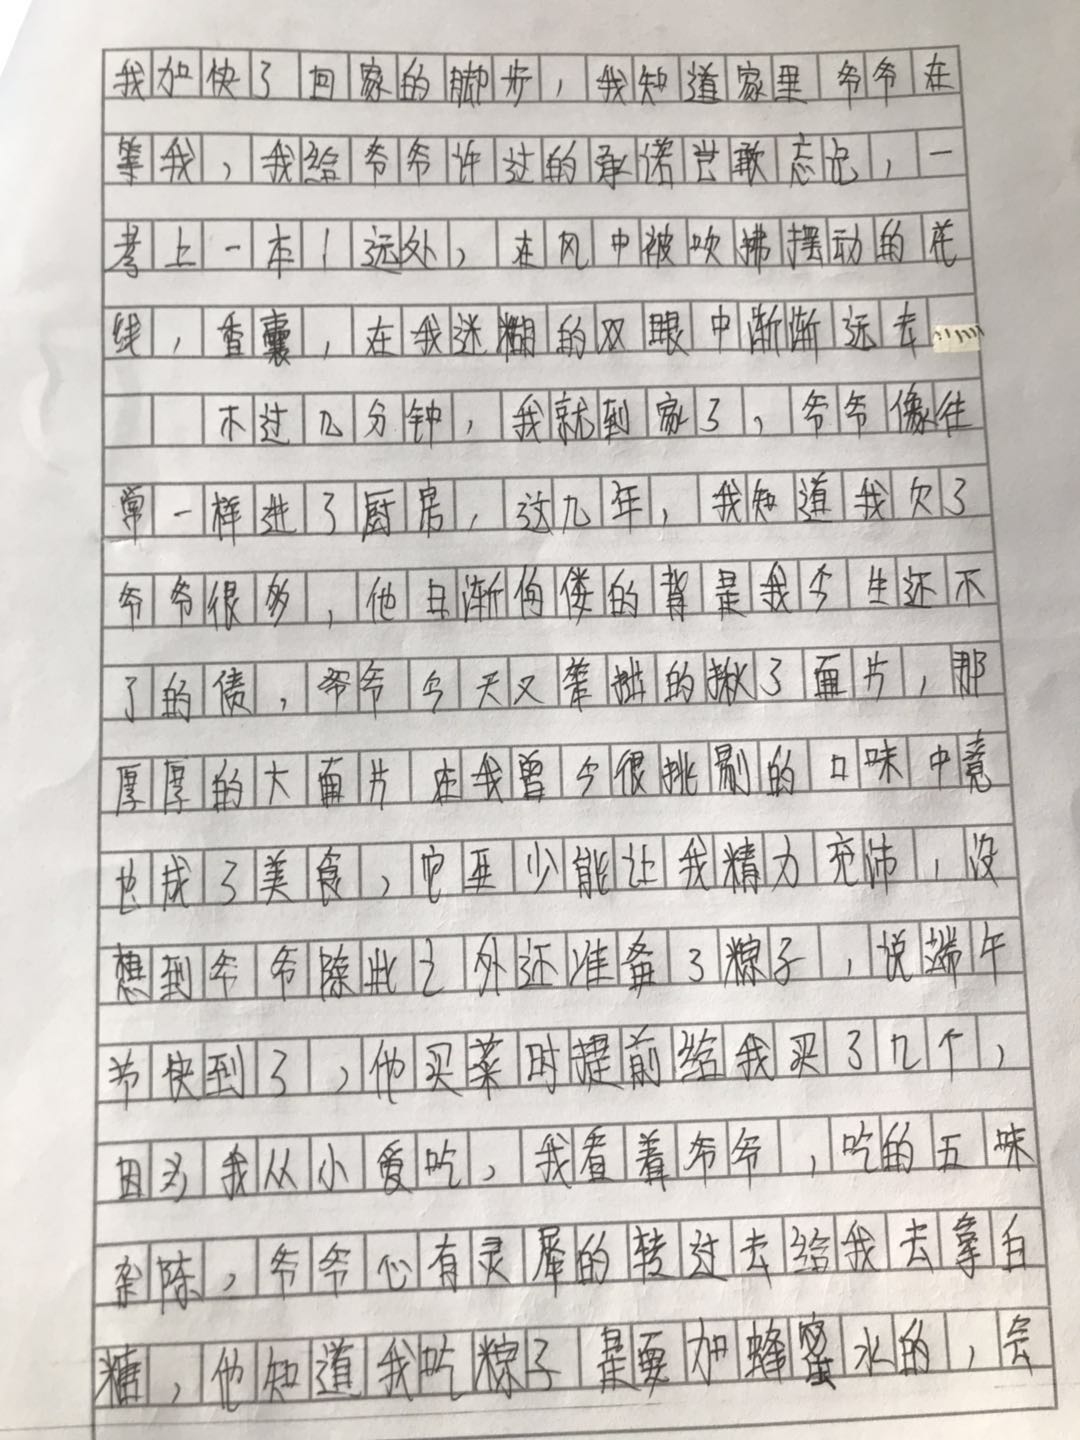 我加快了回家的脚步，我知道家里爷爷在
等我，我给爷爷许过的承诺岂敢忘记，一
考上一本！远处，在风中被吹拂摆动的花
线，香囊，在我迷糊的双眼中渐渐远去
不过几分钟，我就到家了，爷爷像往
常一样进了厨房，这九年，我知道我欠了
爷爷很多，他日渐佝偻的背是我今生还不
了的债，爷爷今天又笨拙的揪了面片，那
厚厚的大面片在我曾今很挑剔的口味中竟
也成了美食，它至少能让我精力充沛，没
想到爷爷除此之外还准备了粽子，说端午
节快到了，他买菜时提前给我买了几个，
因为我从小爱吃，我看着爷爷，吃的五味
杂陈，爷爷心有灵犀的转过去给我去拿白
糖，他知道我吃粽子是要加蜂蜜水的，会